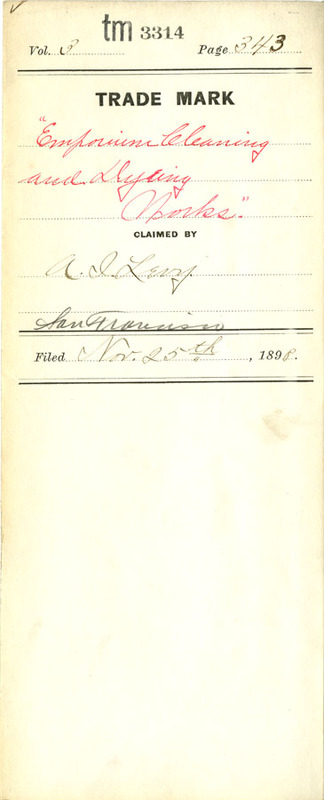 tm 3314
Vol. 3 Page 343
TRADE MARK
"Emporium Cleaning
and Dyeing
Works".
CLAIMED BY
A. I. Levy
San Francisco
Filed Nov. 25th, 1898.